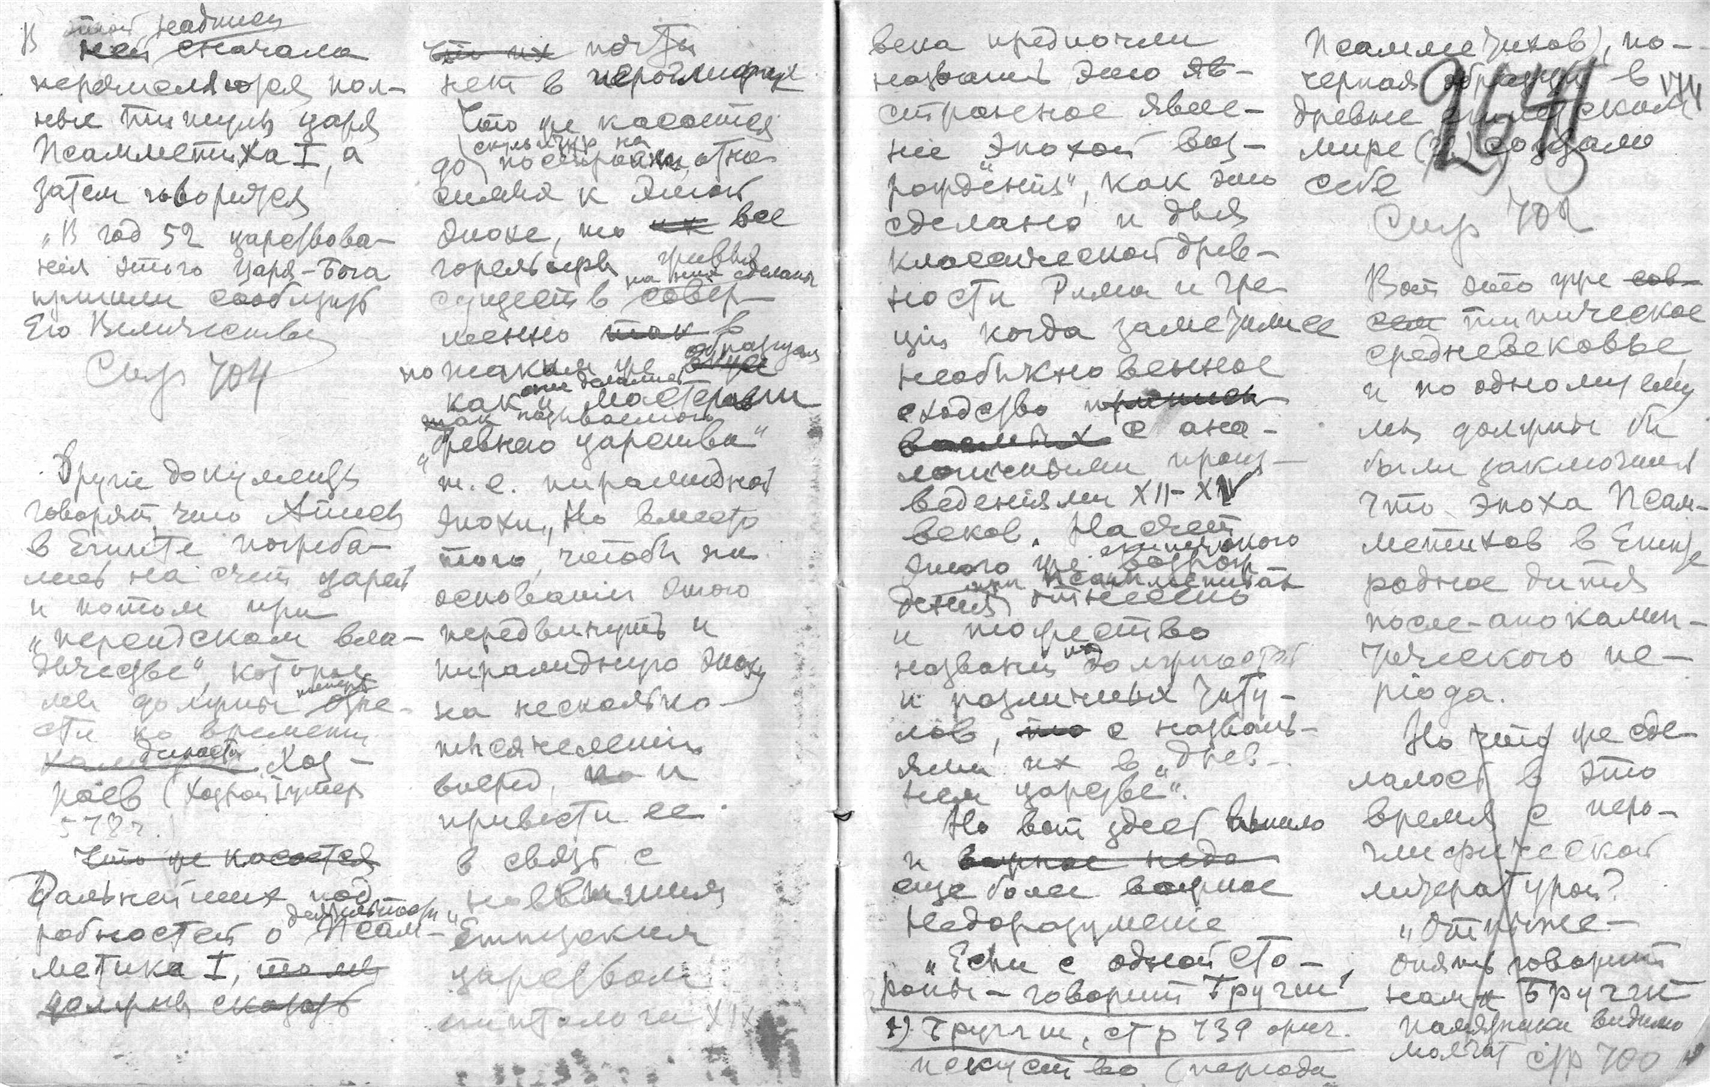 В этой надписи
ней сначала
перечисляются пол-
ные титулы царя
Псамметиха I, а
затем говорится
„В год 52 царствова-
нія этого Царя-Бога
пришли сообщить
Его Величеству
Стр 704
Другіе документы
говорят, что Аписы
в Египте погреба-
лись на счет царей
и потом при
„персидском вла-
дычестве", которые
мы должны теперь отне-
сти ко времени
династи Хоз-
роев (Хозрой Нушер
578 г.
Что же касается
Дальнейших под
робностей о деятельности Псам-
метика I, то мы
должны сказать
что их почти
нет в іероглифах
Что же касается
до скульптур на постройках, отно
сящихся к этой
эпохе, то их все
горельефы
существ на них сделаны совер-
шенно так в
по таким же образцам вкусе
как они делались и мастерами
так называемого
„Древнего царства"
т. е. пирамидной
эпохи. Но вместо
того, чтобы на
основаніи этого
передвинуть и
пирамидную эпоху
на несколько
тысячелетій
вперед, но и
привести ее
в связь с
новейшим
„Египетским
царством
египтологи XIX
века предпочли
назвать это яв-
странное явле-
ніе „эпохой воз-
рожденія", как это
сделано и для
классической древ-
ности Рима и Гре
ціи когда заметили ее
необыкновенное
сходство
с ана-
логичными произ-
веденіями XII-XIV
веков. На счет
этого же египетского возрож
денія при Псамметихах отнесено
и тожество
названій должностей
и различных титу-
лов, то с названі-
ями их в „Древ-
нем царстве".
Но вот здесь вышло
и важное недо
еще более важное
недоразуменіе
„Если с одной сто-
роны - говорит Бругш ¹
1) Бругш, стр 739 ориг.
искусство (періода
Псамметихов), по-
черпая образцы в
древне египетском
мире (?!) создало
себе
264
174
Стр 702
Вот это уже сов-
сем типическое
средневековье,
и по одному ему
мы должны бы
были заключить
что эпоха Псам-
метихов в Египте
родное дитя
после-апокалип-
тического пе-
ріода.
Но что же сде
лалось в это
время с іеро-
глифической
литературой?
„Отныне -
опять говорит
нам Бругш
памятники видимо
молчат стр 700